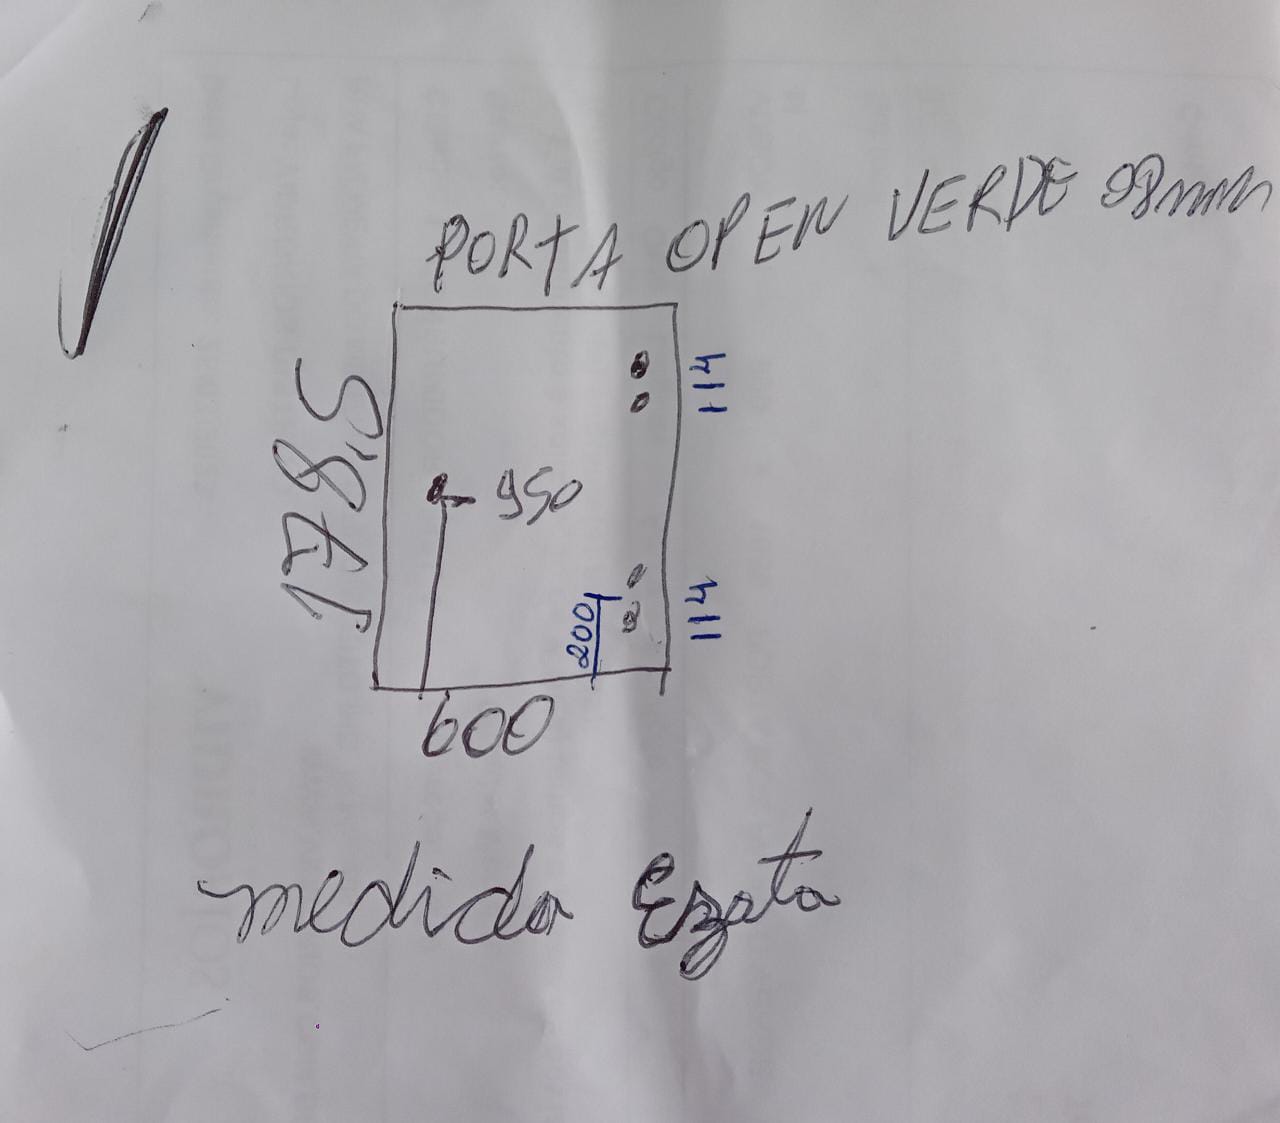 PORTA OPEN VERDE 08mm
114
1785
950
200
114
600
medida Ezata